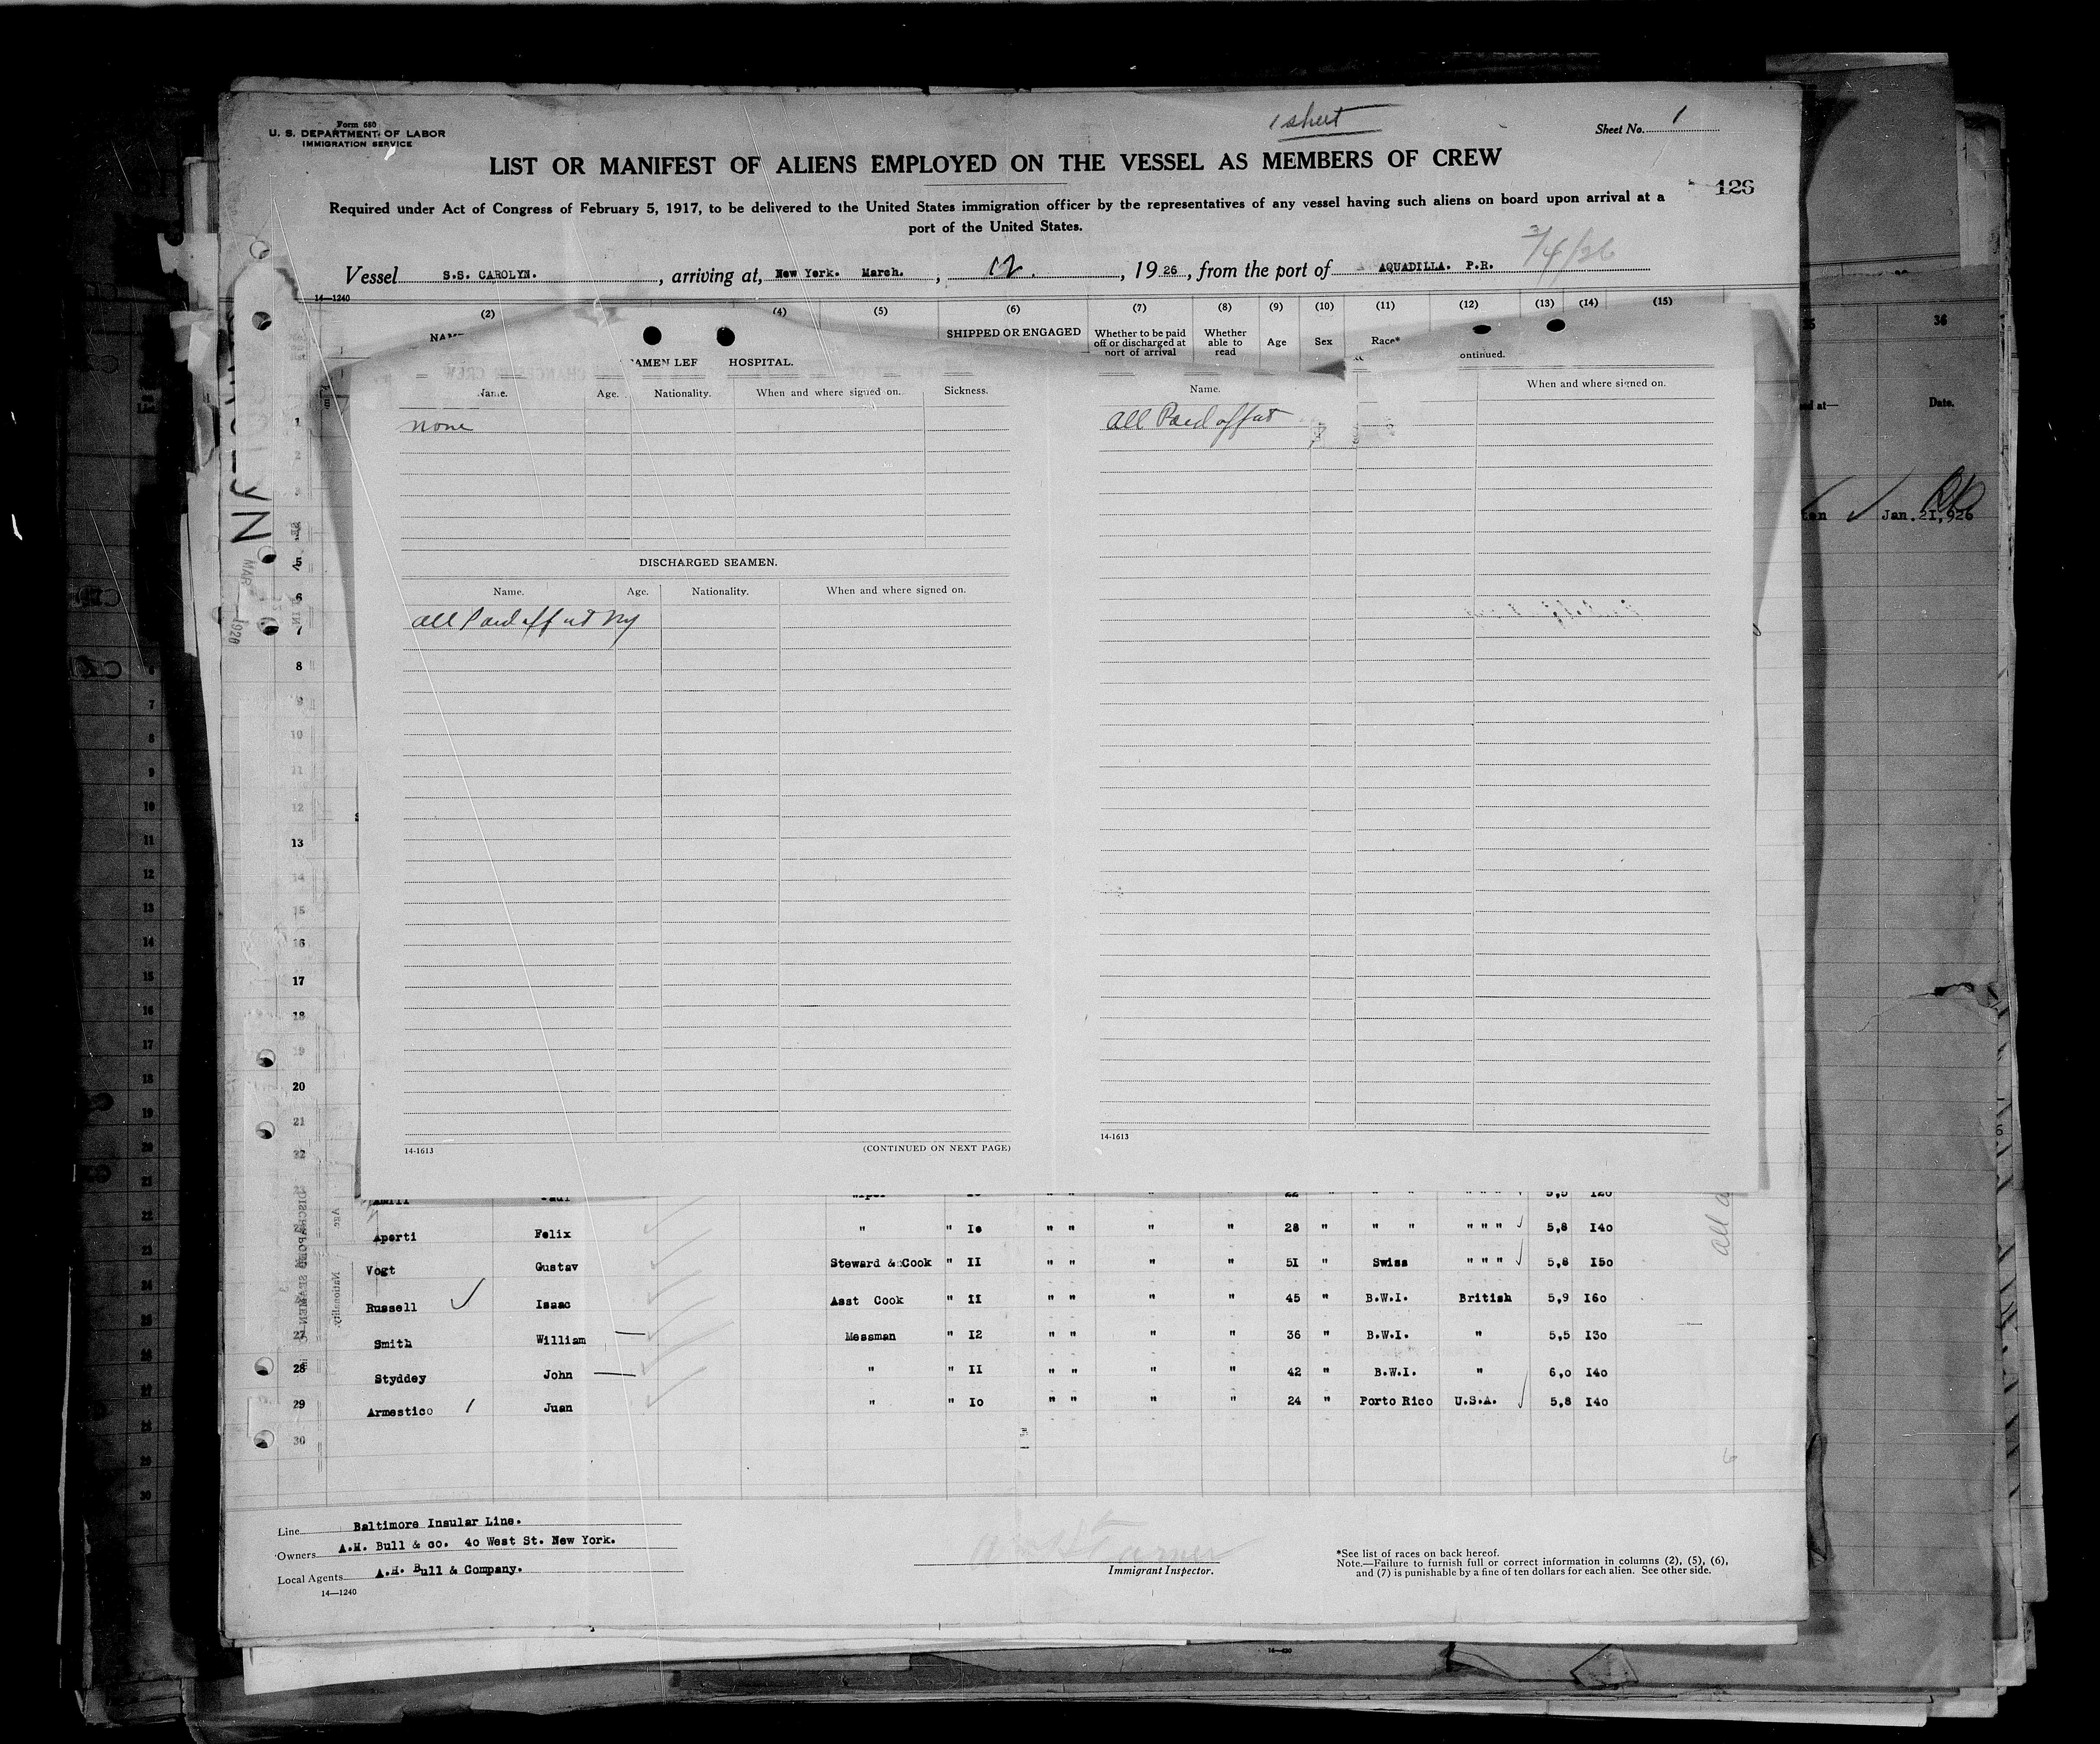 1 sheet
Form 680
U. S. DEPARTMENT OF LABOR
IMMIGRATION SERVICE
Sheet No. 1
LIST OR MANIFEST OF ALIENS EMPLOYED ON THE VESSEL AS MEMBERS OF CREW
126
Required under Act of Congress of February 5, 1917, to be delivered to the United States immigration officer by the representatives of any vessel having such aliens on board upon arrival at a
port of the United States.
3/4/26
Vessel S.S. CAROLYN. , arriving at, New York. March. , 12. , 1926, from the port of AQUADILLA. P.R.
14—1240
(2) (4) (5) (6) (7) (8) (9) (10) (11) (12) (13) (14) (15)
SHIPPED OR ENGAGED Whether to be paid off or discharged at port of arrival Whether able to read Age Sex Race*
HOSPITAL.
ontinued.
Name. Age. Nationality. When and where signed on. Sickness.
none
DISCHARGED SEAMEN.
Name. Age. Nationality. When and where signed on.
all Paid off at NY
14-1613 (CONTINUED ON NEXT PAGE)
Name. When and where signed on.
all Paid off at
14-1613
36
Date.
Jan. 21, 926
Aporti Felix " " Io " " " " 28 " " " " " " 5,8 I40
Vogt Gustav Steward & Cook " II " " " " 5I " Swiss " " " 5,8 I50
Russell Isaac Asst Cook " II " " " " 45 " B.W.I. British 5,9 I60
27 Smith William Messman " I2 " " " " 36 " B.W.I. " 5,5 I30
28 Styddey John " " II " " " " 42 " B.W.I. " 6,0 I40
29 Armestico Juan " " Io " " " " 24 " Porto Rico U.S.A. 5,8 I40
30
Line Baltimore Insular Line.
Owners A.H. Bull & co. 40 West St. New York.
Local Agents A.H. Bull & Company.
14—1240
Immigrant Inspector.
*See list of races on back hereof.
Note.—Failure to furnish full or correct information in columns (2), (5), (6),
and (7) is punishable by a fine of ten dollars for each alien. See other side.